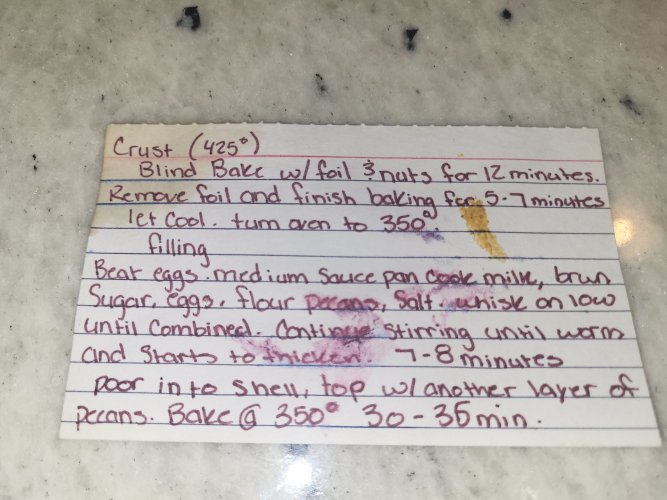 Crust (425°)
Blind Bake w/ foil & nuts for 12 minutes.
Remove foil and finish baking for 5-7 minutes
let cool. turn oven to 350°.
filling
Beat eggs. medium sauce pan cook milk, brun
Sugar, eggs, flour pecans, Salt. whisk on low
until combined. Continue stirring until worm
and starts to thicken. 7-8 minutes
poor in to shell, top w/ another layer of
pecans. Bake @ 350° 30-35 min.